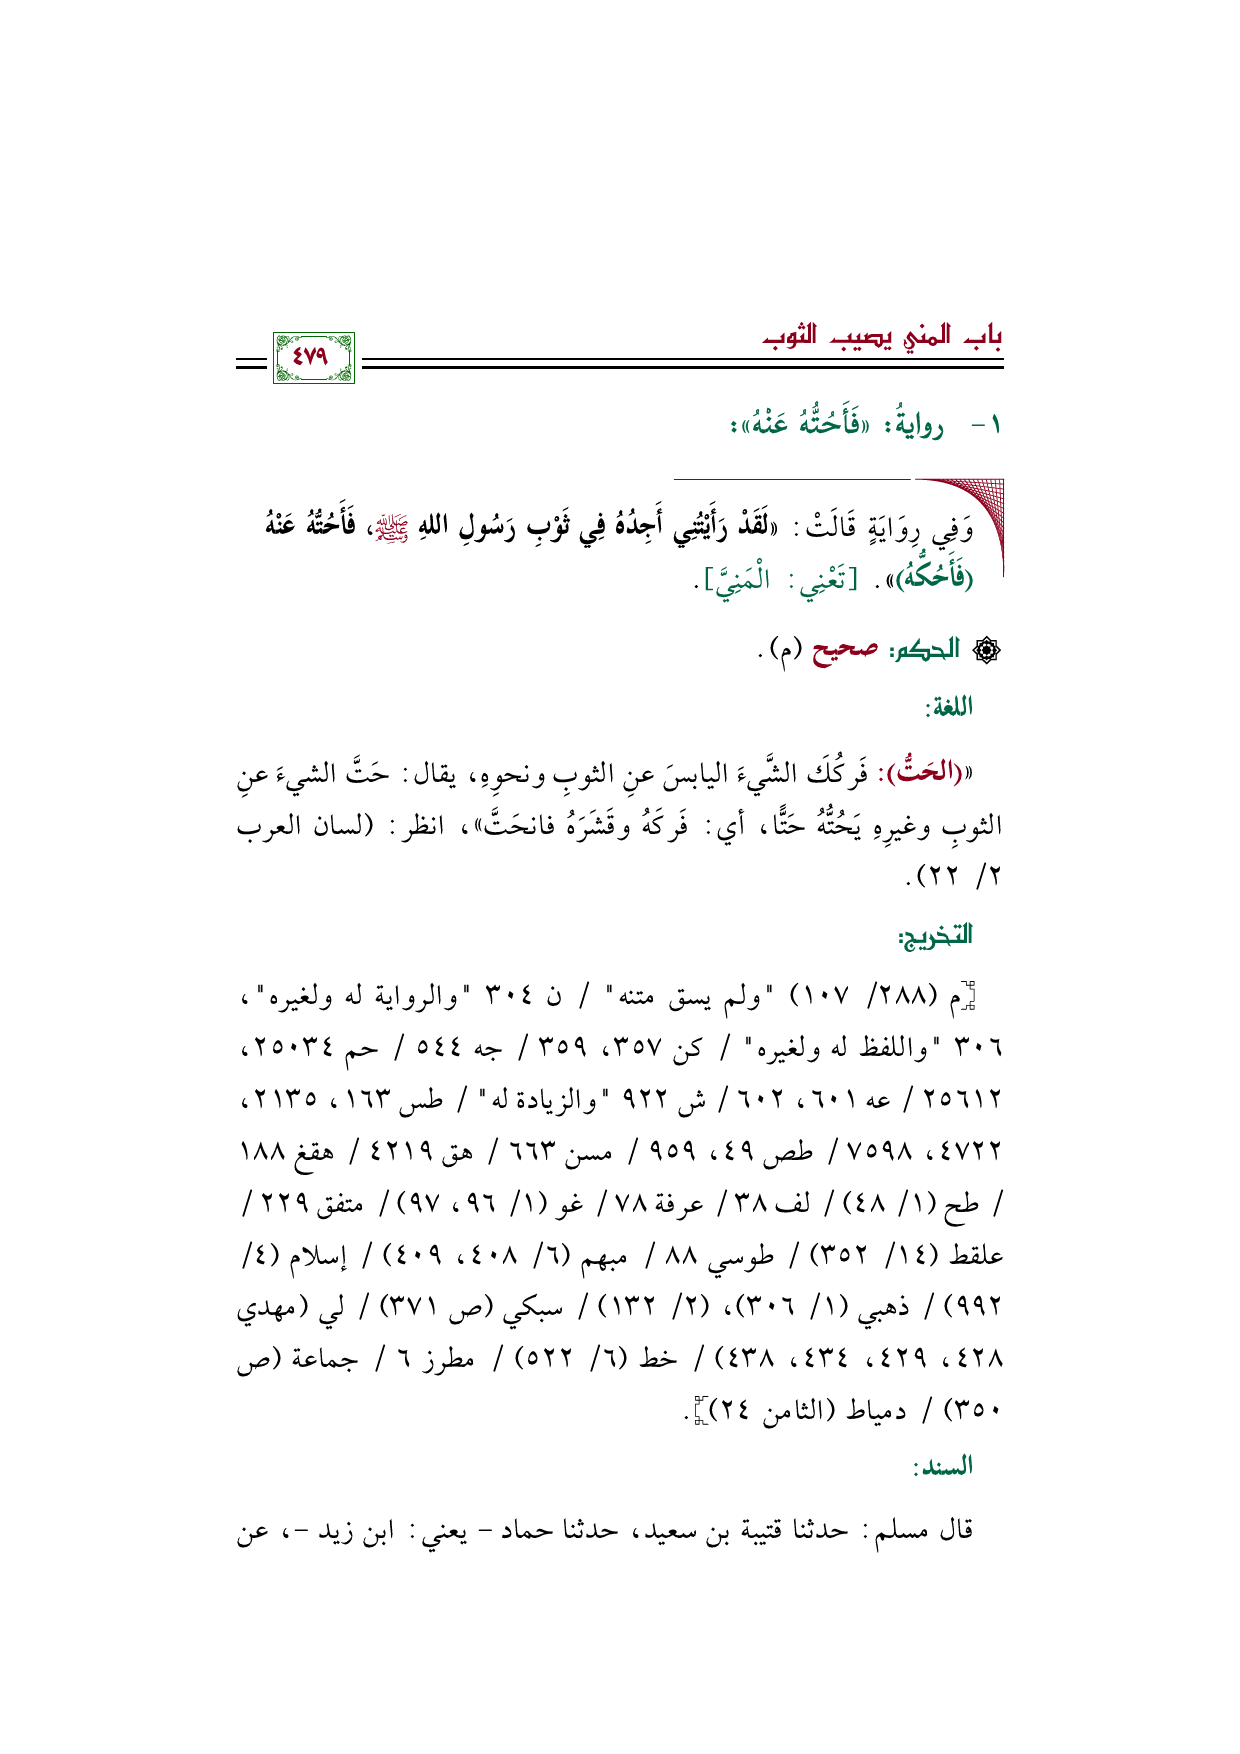 باب المني يصيب الثوب
٤٧٩
١- روايةُ: «فَأَحُتُّهُ عَنْهُ»:
وَفِي رِوَايَةٍ قَالَتْ: «لَقَدْ رَأَيْتُنِي أَجِدُهُ فِي ثَوْبِ رَسُولِ اللهِ ﷺ، فَأَحُتُّهُ عَنْهُ
(فَأَحُكُّهُ)». [تَعْنِي: الْمَنِيَّ].
الحكم: صحيح (م).
اللغة:
«(الحَتُّ): فَركُكَ الشَّيءَ اليابسَ عنِ الثوبِ ونحوِهِ، يقال: حَتَّ الشيءَ عنِ
الثوبِ وغيرِهِ يَحُتُّهُ حَتًّا، أي: فَركَهُ وقَشَرَهُ فانحَتَّ»، انظر: (لسان العرب
٢/ ٢٢).
التخريج:
[م (٢٨٨/ ١٠٧) "ولم يسق متنه" / ن ٣٠٤ "والرواية له ولغيره"،
٣٠٦ "واللفظ له ولغيره" / كن ٣٥٧، ٣٥٩ / جه ٥٤٤ / حم ٢٥٠٣٤،
٢٥٦١٢ / عه ٦٠١، ٦٠٢ / ش ٩٢٢ "والزيادة له" / طس ١٦٣، ٢١٣٥،
٤٧٢٢، ٧٥٩٨ / طص ٤٩، ٩٥٩ / مسن ٦٦٣ / هق ٤٢١٩ / هقغ ١٨٨
/ طح (١/ ٤٨) / لف ٣٨ / عرفة ٧٨ / غو (١/ ٩٦، ٩٧) / متفق ٢٢٩ /
علقط (١٤/ ٣٥٢) / طوسي ٨٨ / مبهم (٦/ ٤٠٨، ٤٠٩) / إسلام (٤/
٩٩٢) / ذهبي (١/ ٣٠٦)، (٢/ ١٣٢) / سبكي (ص ٣٧١) / لي (مهدي
٤٢٨، ٤٢٩، ٤٣٤، ٤٣٨) / خط (٦/ ٥٢٢) / مطرز ٦ / جماعة (ص
٣٥٠) / دمياط (الثامن ٢٤)].
السند:
قال مسلم: حدثنا قتيبة بن سعيد، حدثنا حماد - يعني: ابن زيد -، عن